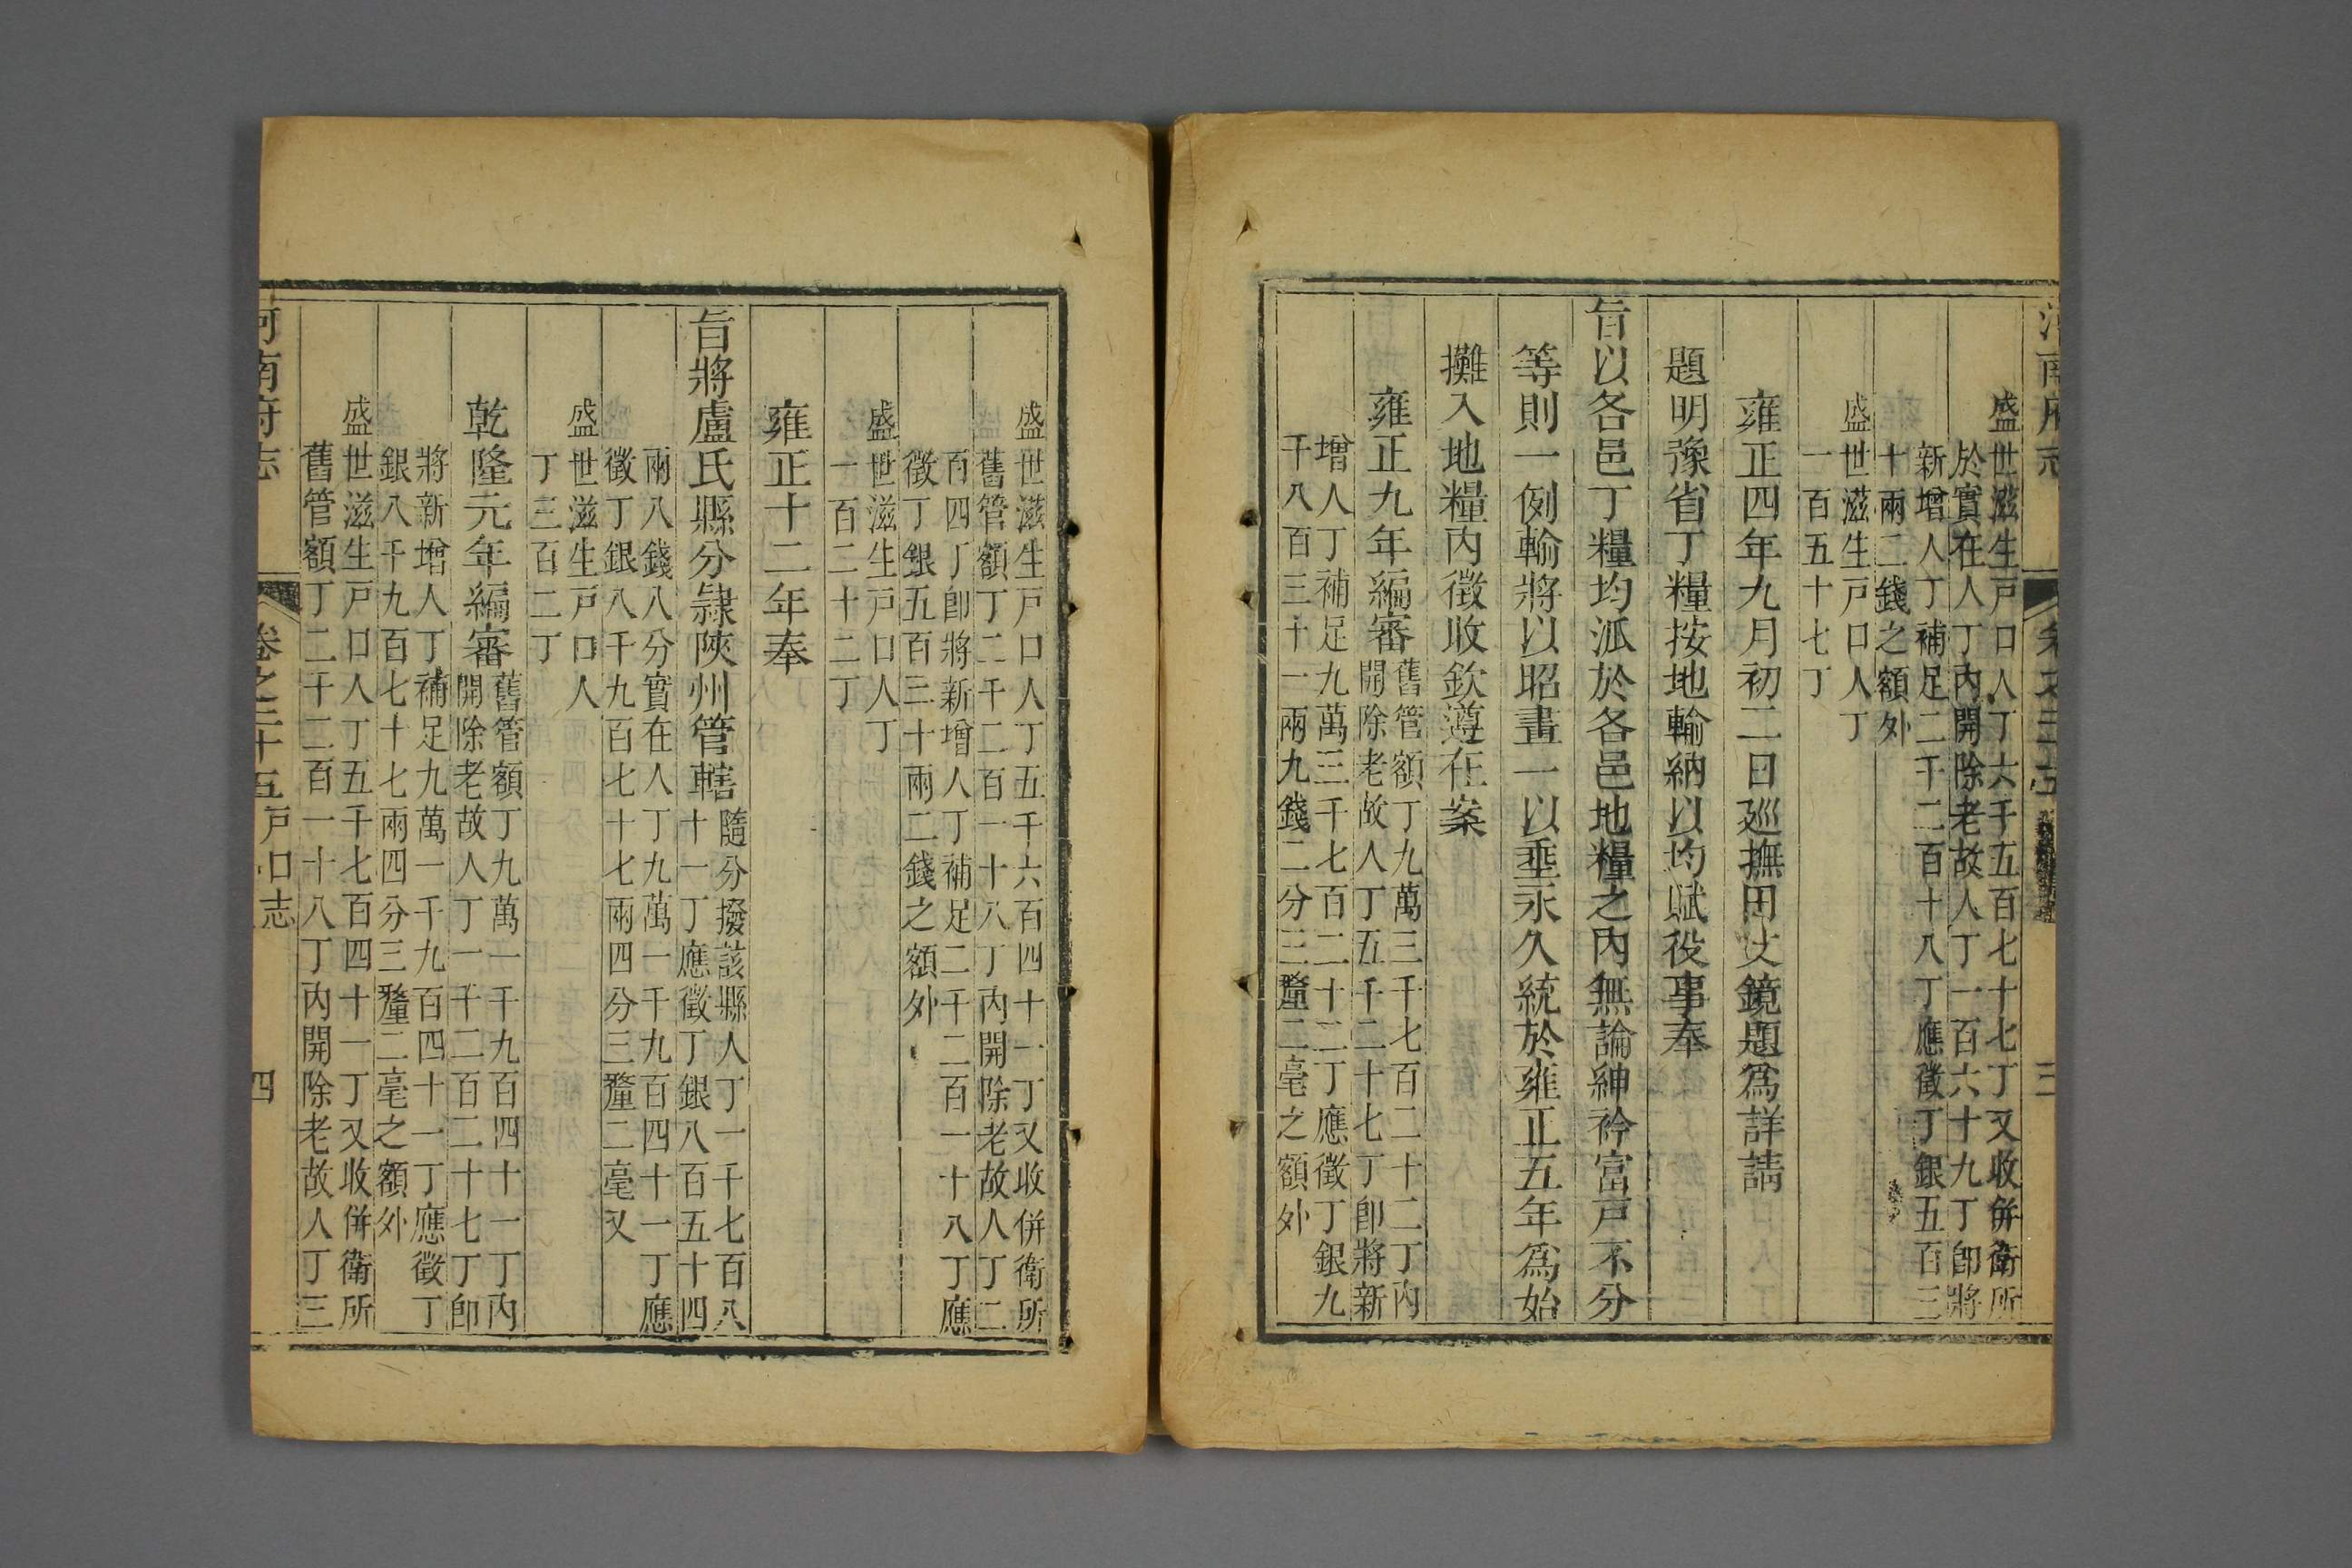 盛世滋生戸口人丁六千五百七十七丁又收併衛所
於實在人丁內開除老故人丁一百六十九丁卽將
新增人丁補足二千二百十八丁應徵丁銀五百三
十兩二錢之額外
盛世滋生戸口人丁
一百五十七丁
雍正四年九月初二日廵撫田文鏡題爲詳請
題明豫省丁糧按地輸納以均賦役事奉
旨以各邑丁糧均派於各邑地糧之內無論紳衿富戸不分
等則一例輸將以昭畫一以垂永久統於雍正五年爲始
攤入地糧內徵收欽遵在案
雍正九年編審舊管額丁九萬三千七百二十二丁內
開除老故人丁五千二十七丁卽將新
增人丁補足九萬三千七百二十二丁應徵丁銀九
千八百三十一兩九錢二分三釐二毫之額外
盛世滋生戸口人丁五千六百四十一丁又收併衛所
舊管額丁二千二百一十八丁內開除老故人丁二
百四丁卽將新增人丁補足二千二百一十八丁應
徵丁銀五百三十兩二錢之額外
盛世滋生戸口人丁
一百二十二丁
雍正十二年奉
旨將盧氏縣分隸陝州管轄隨分撥該縣人丁一千七百八
十一丁應徵丁銀八百五十四
兩八錢八分實在人丁九萬一千九百四十一丁應
徵丁銀八千九百七十七兩四分三釐二毫又
盛世滋生戸口人
丁三百二丁
乾隆元年編審舊管額丁九萬一千九百四十一丁內
開除老故人丁一千二百二十七丁卽
將新增人丁補足九萬一千九百四十一丁應徵丁
銀八千九百七十七兩四分三釐二毫之額外
盛世滋生戸口人丁五千七百四十一丁又收併衛所
舊管額丁二千二百一十八丁內開除老故人丁三
河南府志 卷之二十五 戸口志 四